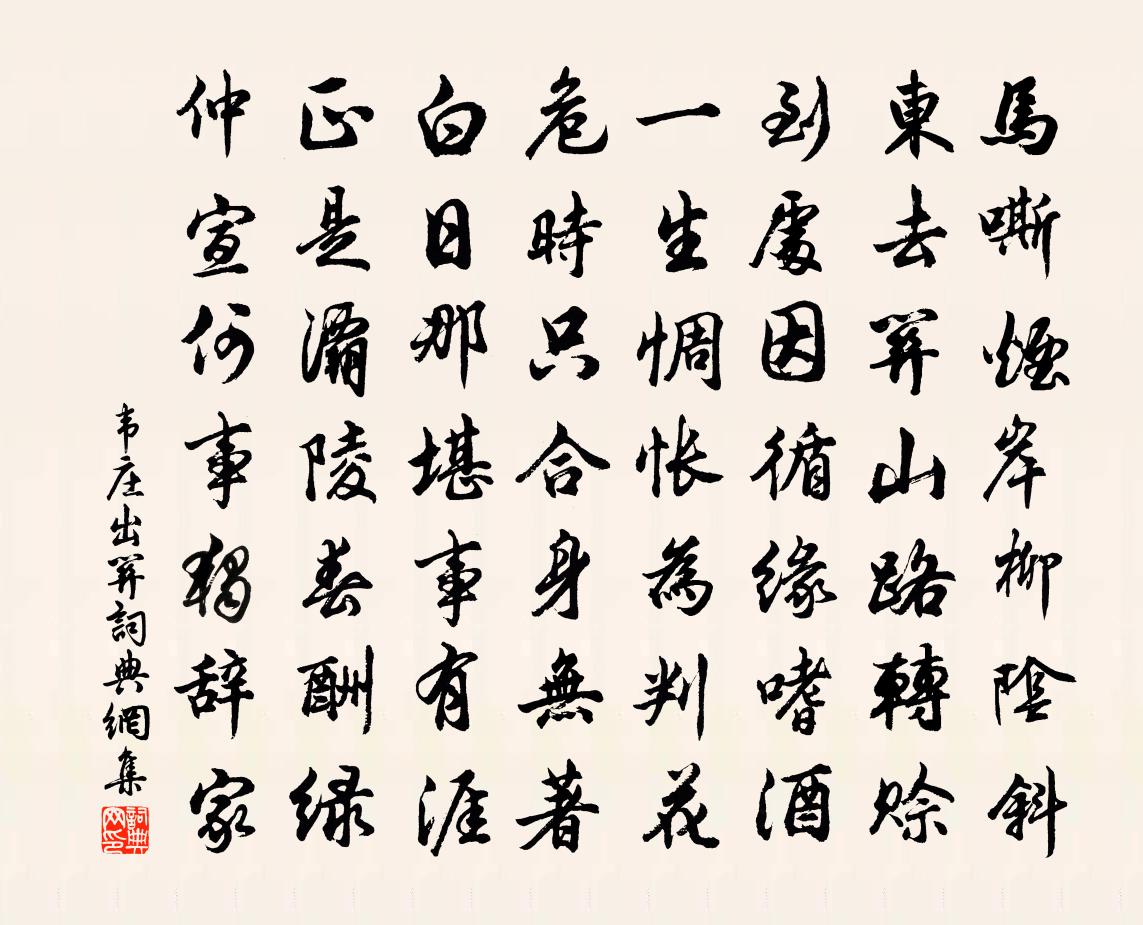 馬嘶煙岸柳陰斜
東去關山路轉賒
到處因循緣嗜酒
一生惆悵為判花
危時只合身無著
白日那堪事有涯
正是灞陵春酬綠
仲宣何事獨辭家
韦庄出關詞典網集
詞典网印